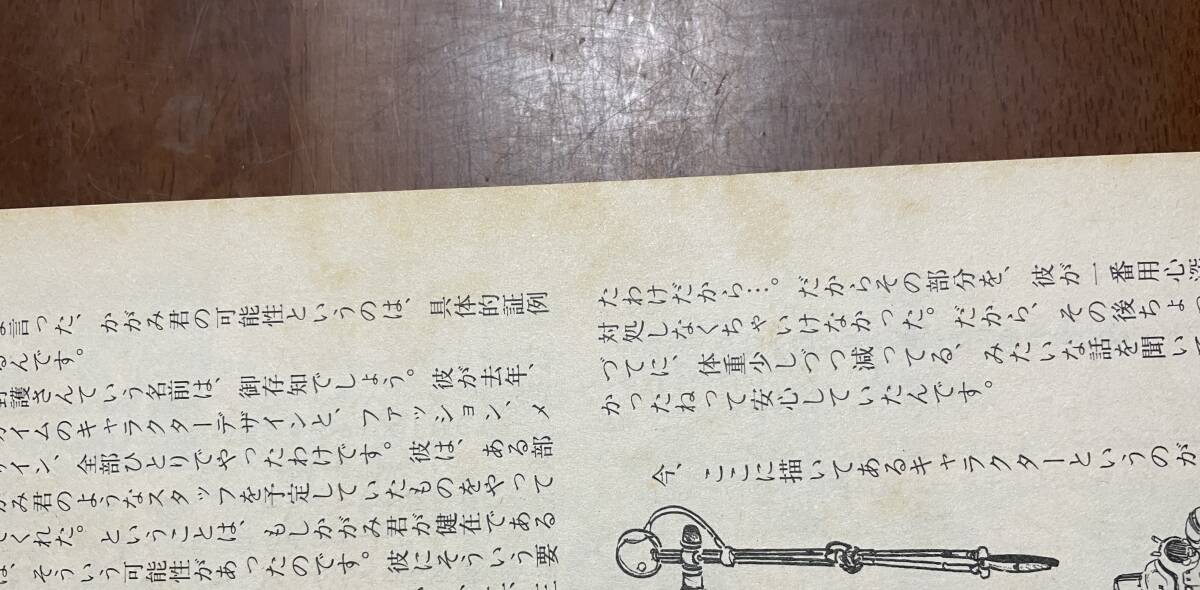 言った、かがみ君の可能性というのは、具体的証例
るんです。
護さんていう名前は、御存知でしょう。彼が去年、
イムのキャラクターデザインと、ファッション、メ
イン、全部ひとりでやったわけです。彼は、ある部
がみ君のようなスタッフを予定していたものをやって
くれた。ということは、もしかがみ君が健在である
は、そういう可能性があったのです。彼にそういう要
たわけだから…。だからその部分を、彼が一番用心深
対処しなくちゃいけなかった。だから、その後ちょ
づてに、体重少しづつ減ってる、みたいな話を聞いて
かったねって安心していたんです。
今、ここに描いてあるキャラクターというのが